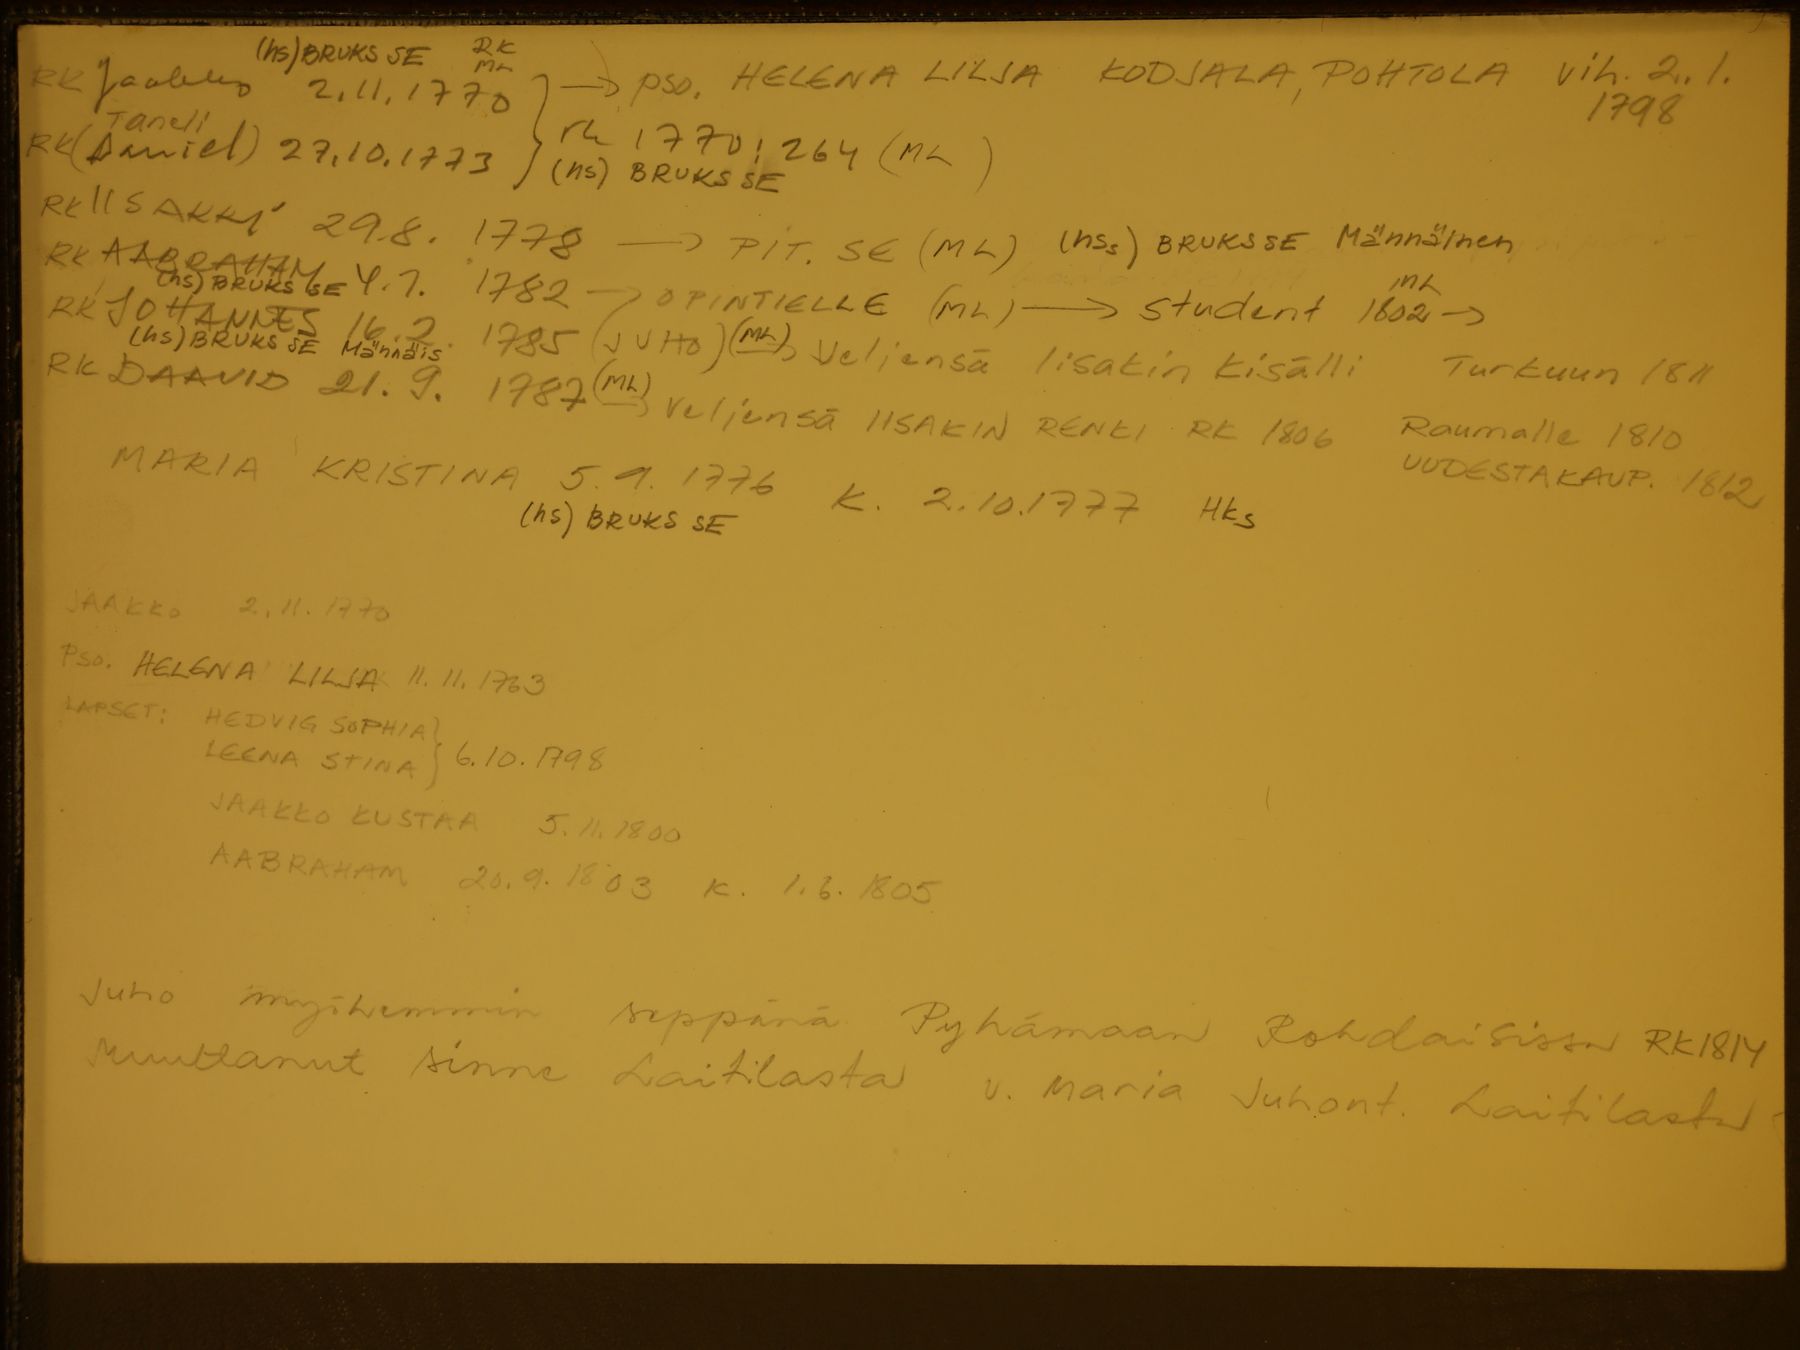 (hs) BRUKS SE RK ML
RK Jaakko 2.11.1770 } → pso. HELENA LILJA KODJALA, POHTOLA vih. 2.1.
1798
Taneli
RK (Daniel) 27.10.1773 } rk 1770: 264 (ML)
(hs) BRUKS SE
RK IISAKKI 29.8. 1778 → PIT. SE (ML) (hss) BRUKS SE Männäinen
RK AABRAHAM 4.7. 1782 → OPINTIELLE (ML) → student 1802 →
ML
(hs) BRUKS SE
RK JOHANNES 16.2. 1785 (JUHO) (ML) → Veljensä Iisakin kisälli Turkuun 1811
(hs) BRUKS SE Männäis
RK DAAVID 21.9. 1787 (ML) → Veljensä IISAKIN RENKI RK 1806 Raumalle 1810
UUDESTAKAUP. 1812
MARIA KRISTINA 5.9.1776 K. 2.10.1777 HKs
(hs) BRUKS SE
JAAKKO 2.11.1770
Pso. HELENA LILJA 11.11.1763
LAPSET: HEDVIG SOPHIA }
LEENA STINA } 6.10.1798
JAAKKO KUSTAA 5.11.1800
AABRAHAM 20.9.1803 K. 1.6.1805
Juho myöhemmin seppänä Pyhämaan Rohdaisissa RK1814
Muuttanut sinne Laitilasta v. Maria Juhont. Laitilasta